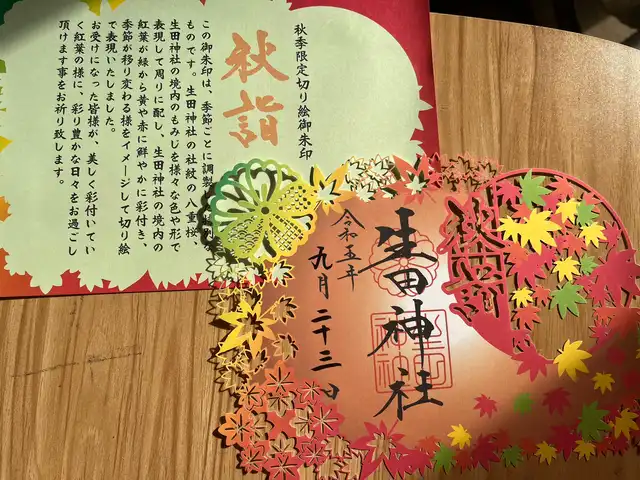 秋季限定切り絵御朱印
秋詣
この御朱印は、季節ごとに調製
ものです。生田神社の社紋の八重桜
生田神社の境内のもみじを様々な色や形で
表現して周りに配し、生田神社の境内の
紅葉が緑から黄や赤に鮮やかに彩付き、
季節が移り変わる様をイメージして切り絵
で表現いたしました。
お受けになった皆様が、美しく彩付いてい
く紅葉の様に、彩り豊かな日々をお過ごし
頂けます事をお祈り致します。
秋詣
生田神社
令和五年
九月二十三日